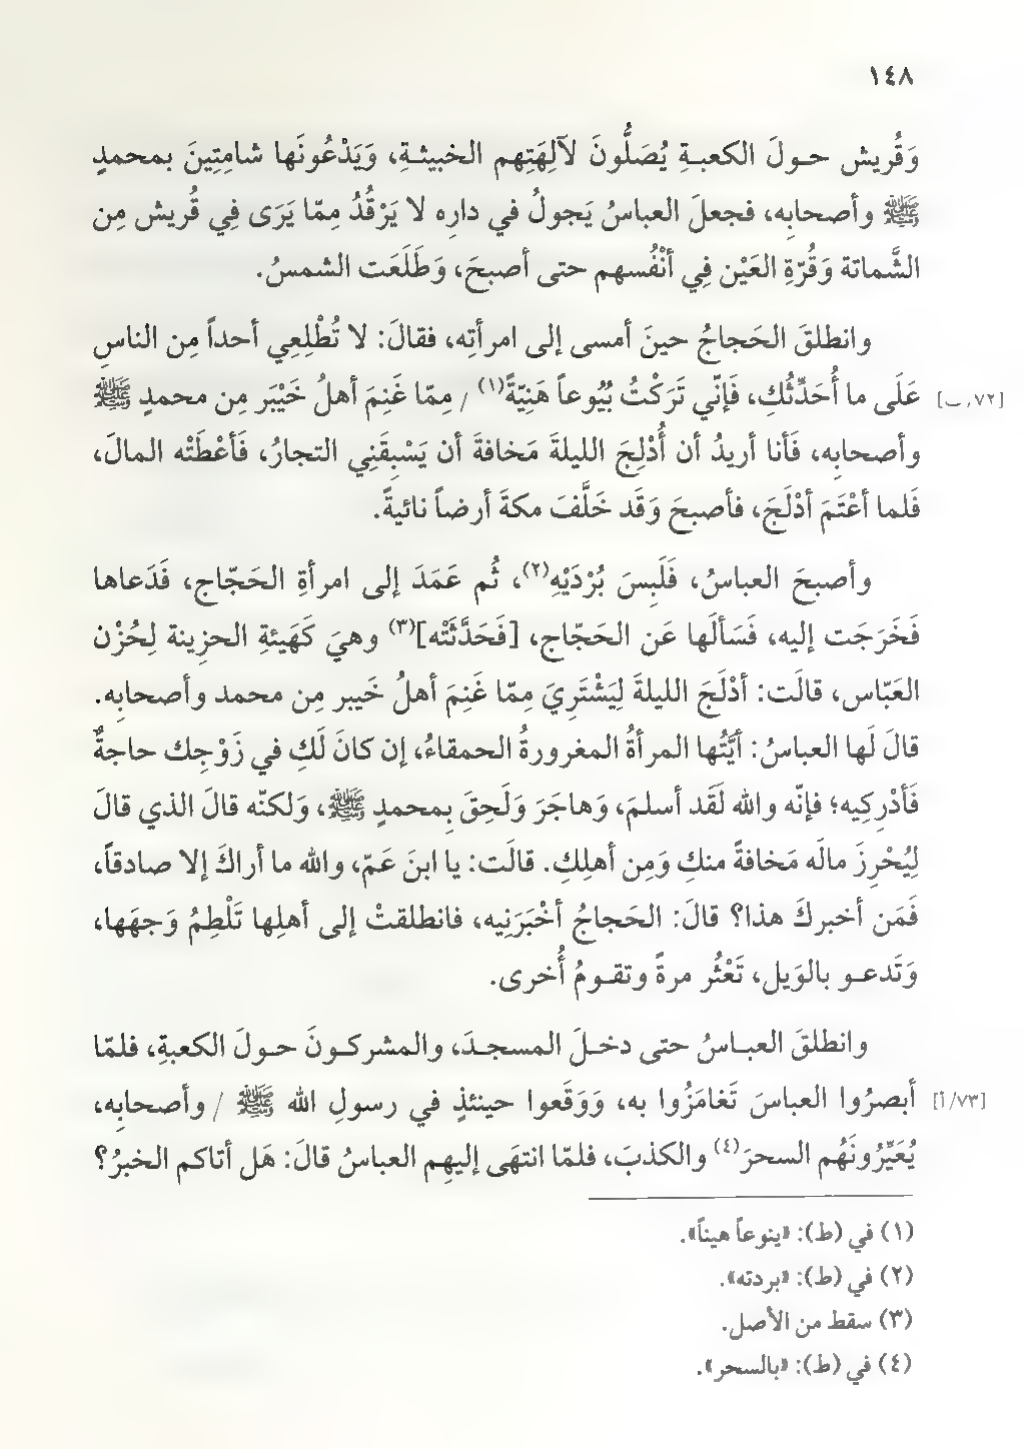 ١٤٨
وَقُريش حـولَ الكعبـةِ يُصَلُّونَ لآلِهَتِهم الخبيثـةِ، وَيَدْعُونَها شامِتِينَ بمحمدٍ
ﷺ وأصحابِه، فجعلَ العباسُ يَجولُ في دارِه لا يَرْقُدُ مِمّا يَرَى فِي قُريش مِن
الشَّماتة وَقُرّةِ العَيْن فِي أنْفُسهم حتى أصبحَ، وَطَلَعَت الشمسُ.
وانطلقَ الحَجاجُ حينَ أمسى إلى امرأتِه، فقالَ: لا تُطْلِعِي أحداً مِن الناسِ
عَلَى ما أُحَدِّثُكِ، فَإنّي تَرَكْتُ بُيُوعاً هَنِيّةً(١) / مِمّا غَنِمَ أهلُ خَيْبَر مِن محمدٍ ﷺ [٧٢/ب]
وأصحابِه، فَأنا أريدُ أن أُدْلِجَ الليلةَ مَخافةَ أن يَسْبِقَنِي التجارُ، فَأعْطَتْه المالَ،
فَلما أعْتَمَ أدْلَجَ، فأصبحَ وَقَد خَلَّفَ مكةَ أرضاً نائيةً.
وأصبحَ العباسُ، فَلَبِسَ بُرْدَيْهِ(٢)، ثُم عَمَدَ إلى امرأةِ الحَجّاج، فَدَعاها
فَخَرَجَت إليه، فَسَألَها عَن الحَجّاج، [فَحَدَّثَتْه](٣) وهيَ كَهَيئةِ الحزِينة لِحُزْن
العَبّاس، قالَت: أدْلَجَ الليلةَ لِيَشْتَرِيَ مِمّا غَنِمَ أهلُ خَيبر مِن محمد وأصحابِه.
قالَ لَها العباسُ: أيَّتُها المرأةُ المغرورةُ الحمقاءُ، إن كانَ لَكِ في زَوْجِك حاجةٌ
فَأدْرِكِيه؛ فإنّه والله لَقَد أسلمَ، وَهاجَرَ وَلَحِقَ بِمحمدٍ ﷺ، وَلكنّه قالَ الذي قالَ
لِيُحْرِزَ مالَه مَخافةً منكِ وَمِن أهلِكِ. قالَت: يا ابنَ عَمّ، والله ما أراكَ إلا صادقاً،
فَمَن أخبركَ هذا؟ قالَ: الحَجاجُ أخْبَرَنِيه، فانطلقتْ إلى أهلِها تَلْطِمُ وَجهَها،
وَتَدعـو بالوَيل، تَعْثُر مرةً وتقـومُ أُخرى.
وانطلقَ العبـاسُ حتى دخـلَ المسجـدَ، والمشركـونَ حـولَ الكعبةِ، فلمّا
أبصرُوا العباسَ تَغامَزُوا به، وَوَقَعوا حينئذٍ في رسولِ الله ﷺ / وأصحابِه، [٧٣/أ]
يُعَيِّرُونَهُم السحرَ(٤) والكذبَ، فلمّا انتهَى إليهِم العباسُ قالَ: هَل أتاكم الخبرُ؟
(١) في (ط): «ينوعاً هيناً».
(٢) في (ط): «بردته».
(٣) سقط من الأصل.
(٤) في (ط): «بالسحر».